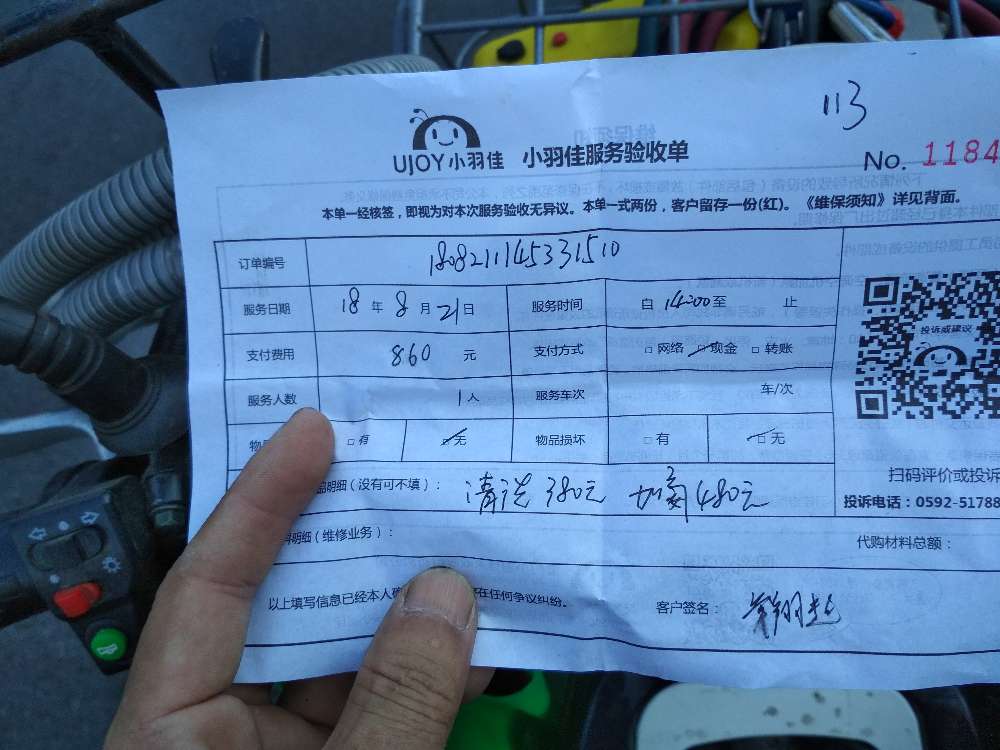 113
UJOY小羽佳 小羽佳服务验收单
No. 1184
本单一经核签，即视为对本次服务验收无异议。本单一式两份，客户留存一份(红)。《维保须知》详见背面。
订单编号 1808211145331510
服务日期 18 年 8 月 21 日 服务时间 自 14:00 至 止
支付费用 860 元 支付方式 □ 网络 □ 现金 □ 转账
投诉或建议
服务人数 1 人 服务车次 车/次
物 □ 有 □ 无 物品损坏 □ 有 □ 无
扫码评价或投诉
明细（没有可不填）： 清洗380元 加氟480元
投诉电话：0592-51788
明细（维修业务）：
代购材料总额：
以上填写信息已经本人 在任何争议纠纷。
客户签名：